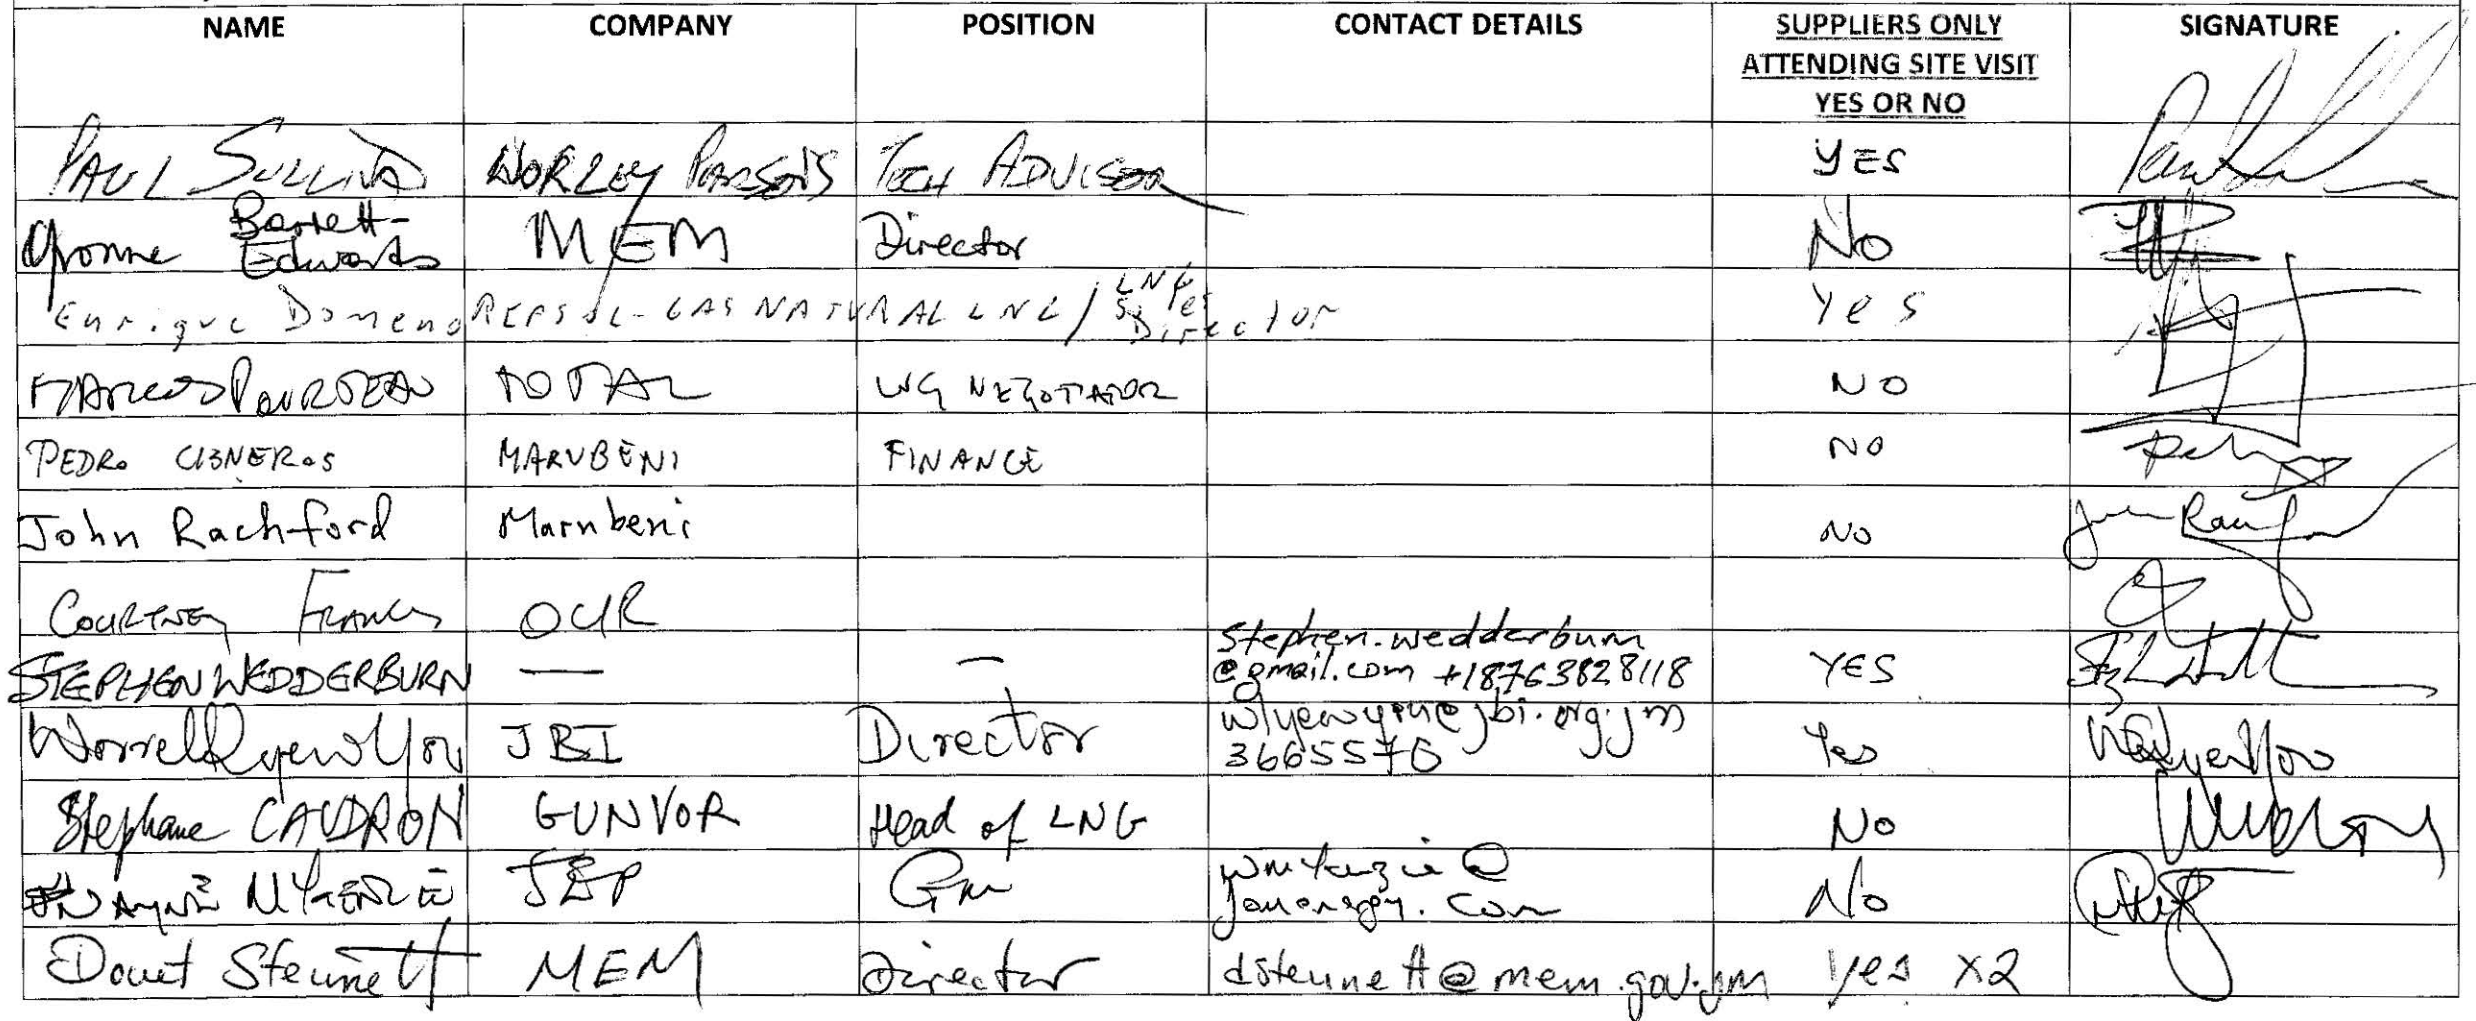 NAME COMPANY POSITION CONTACT DETAILS SUPPLIERS ONLY SIGNATURE
ATTENDING SITE VISIT
YES OR NO
PAUL SULLIVAN WORLEY PARSONS TECH ADVISOR YES
Yvonne Barrett-
Edwards MEM Director No
Enrique Domeno REPSOL-GAS NATURAL LNG / LNG
Sales
Director Yes
TOTAL LNG NEGOTIATOR NO
PEDRO CISNEROS MARUBENI FINANCE NO
John Rachford Marubeni NO
COURTNEY FRANCIS OUR
STEPHEN WEDDERBURN — — stephen.wedderburn
@gmail.com +18763828118 YES
Worrell Lyew You JBI Director wlyewyou@jbi.org.jm
3665576 Yes
Stephane CAUDRON GUNVOR Head of LNG No
WAYNE McKENZIE JEP GM wmckenzie@
jamenergy.com No
Stennett MEM Director dstennett@mem.gov.jm Yes x2